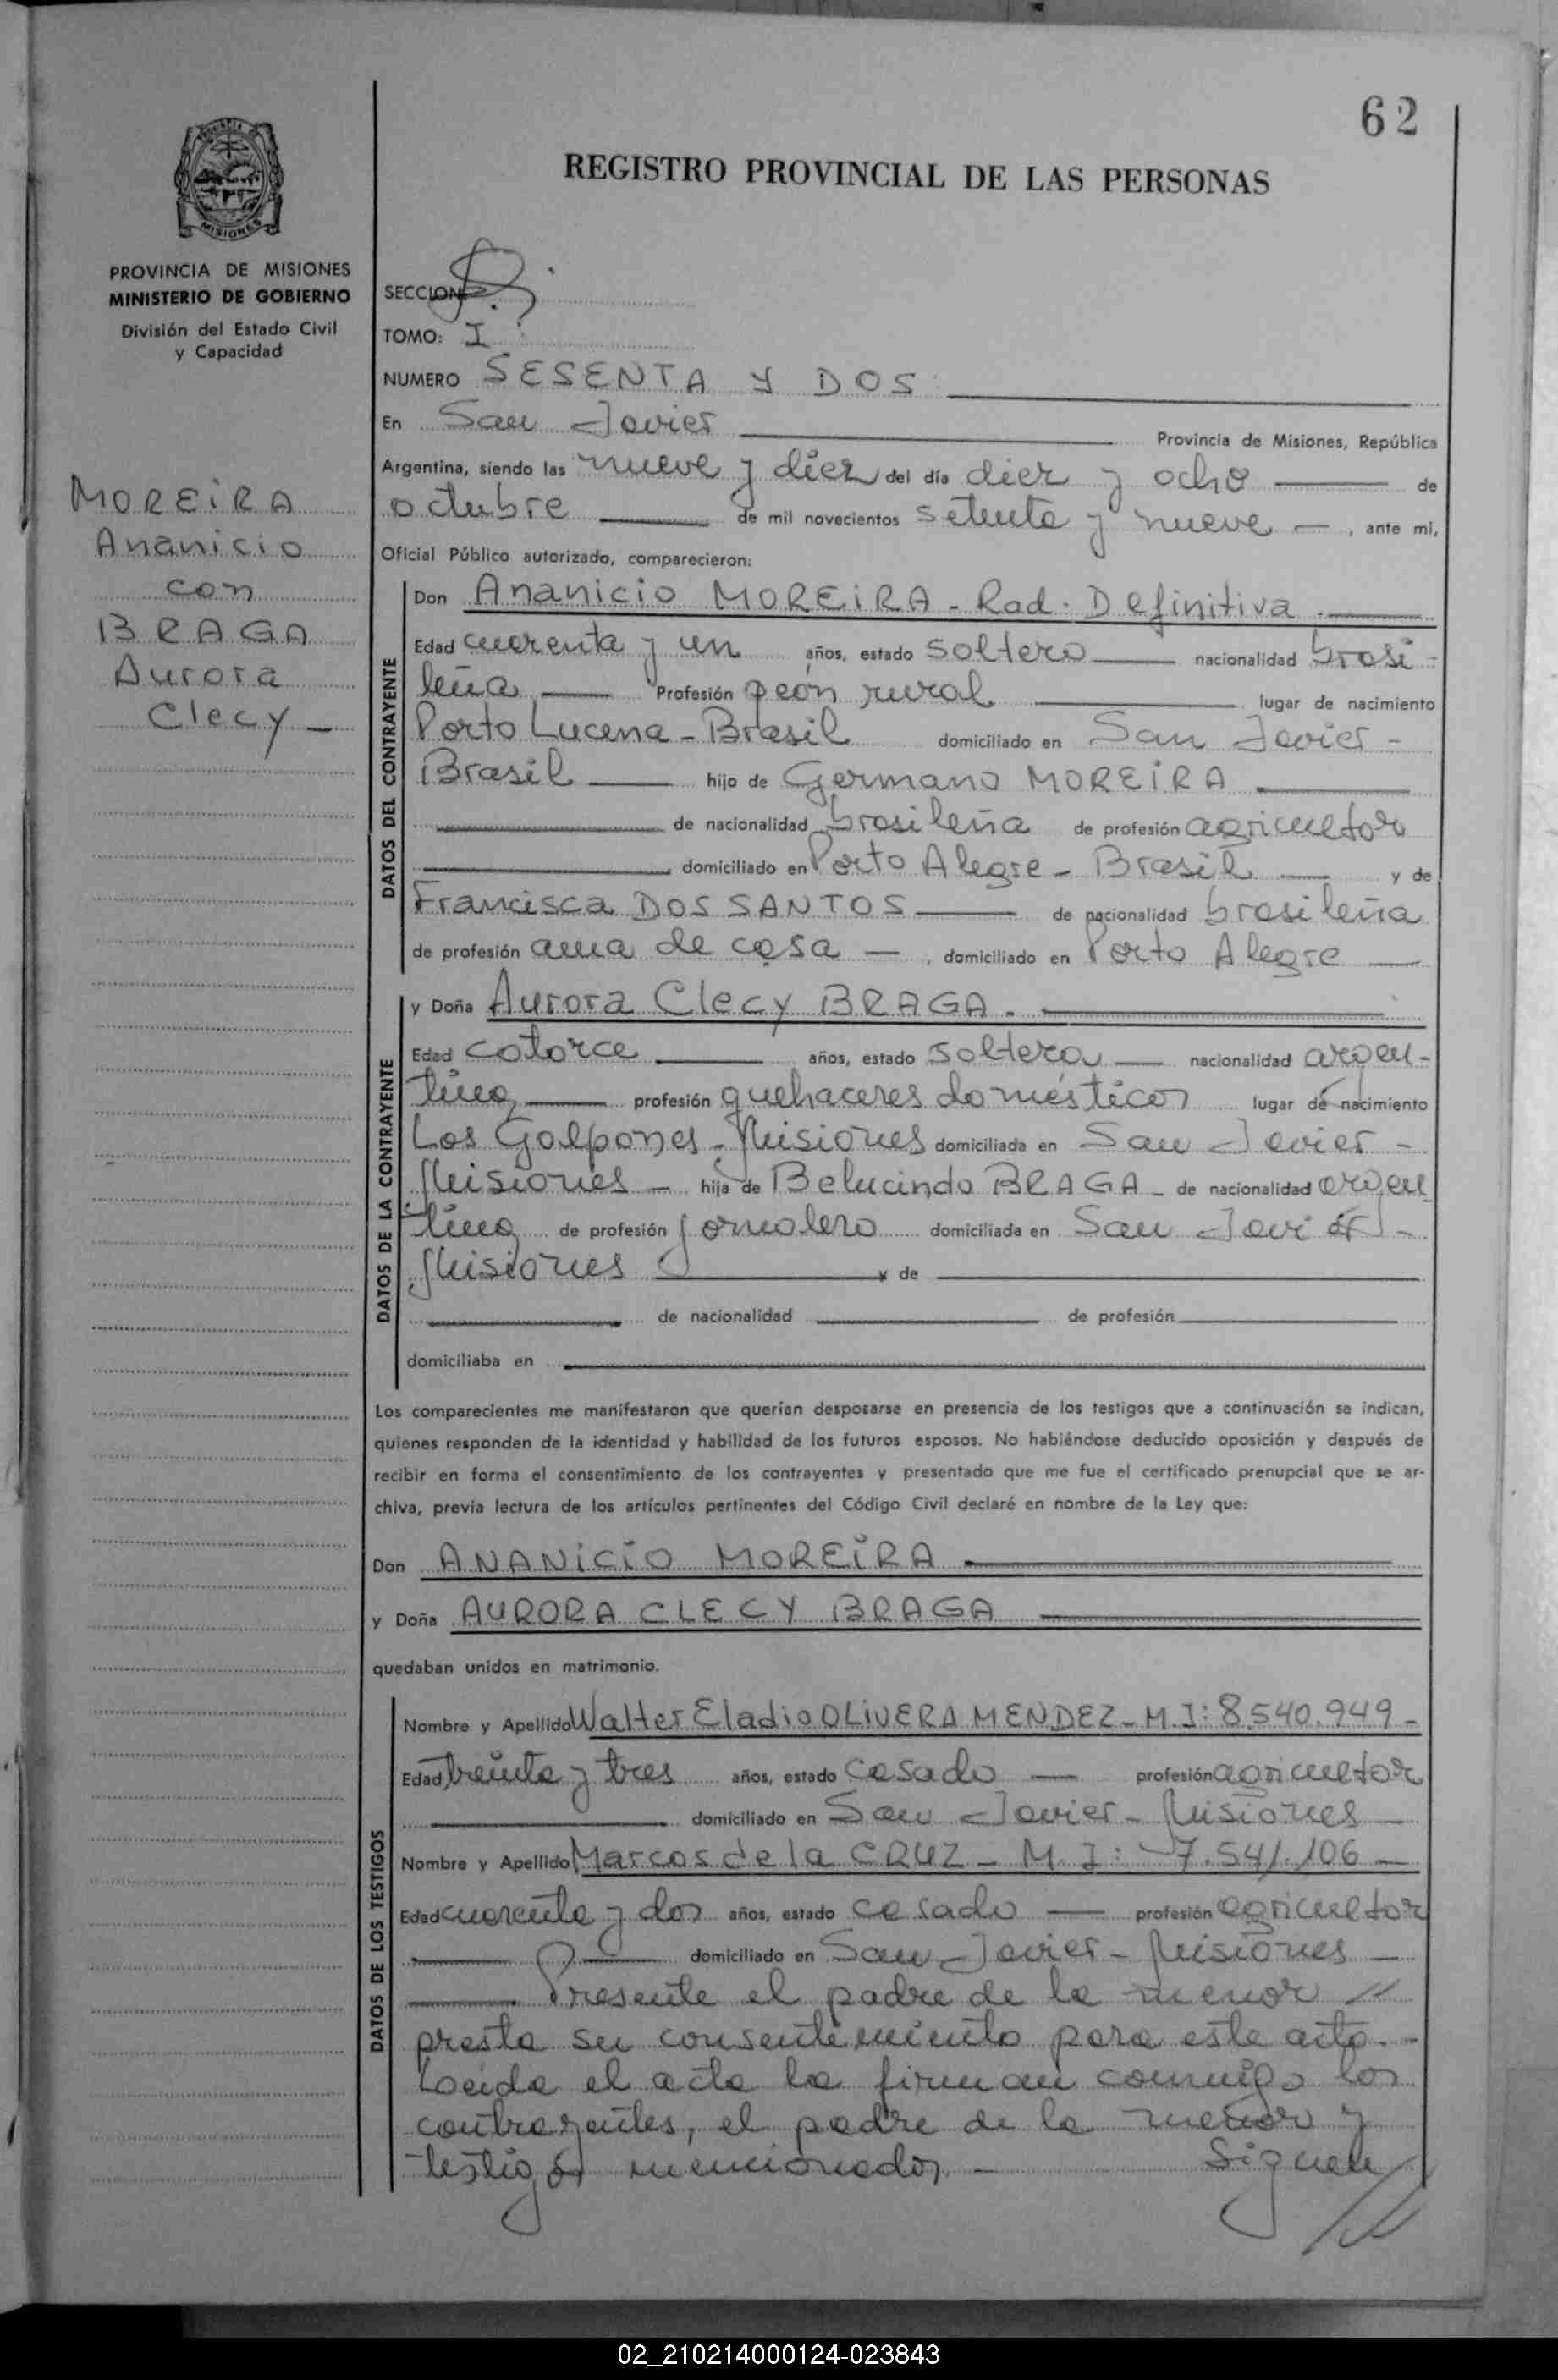 62
REGISTRO PROVINCIAL DE LAS PERSONAS
MISIONES
PROVINCIA DE MISIONES
MINISTERIO DE GOBIERNO
División del Estado Civil
y Capacidad
MOREIRA
Ananicio
con
BRAGA
Aurora
Clecy —
SECCION
TOMO: I
NUMERO SESENTA Y DOS
En San Javier Provincia de Misiones, República
Argentina, siendo las nueve y diez del día diez y ocho de
octubre de mil novecientos setenta y nueve —, ante mi,
Oficial Público autorizado, comparecieron:
DATOS DEL CONTRAYENTE
Don Ananicio MOREIRA - Rad. Definitiva.
Edad cuarenta y un años, estado soltero nacionalidad brasi-
leña Profesión peón rural lugar de nacimiento
Porto Lucena - Brasil domiciliado en San Javier -
Brasil hijo de Germano MOREIRA
de nacionalidad brasileña de profesión agricultor
domiciliado en Porto Alegre - Brasil y de
Francisca DOS SANTOS de nacionalidad brasileña
de profesión ama de casa —, domiciliado en Porto Alegre —
DATOS DE LA CONTRAYENTE
y Doña Aurora Clecy BRAGA.
Edad catorce años, estado soltera nacionalidad argen-
tina profesión quehaceres domésticos lugar de nacimiento
Los Galpones - Misiones domiciliada en San Javier -
Misiones — hija de Belucindo BRAGA - de nacionalidad argen
tina de profesión jornalero domiciliada en San Javier -
Misiones y de
de nacionalidad de profesión
domiciliaba en
Los comparecientes me manifestaron que querían desposarse en presencia de los testigos que a continuación se indican,
quienes responden de la identidad y habilidad de los futuros esposos. No habiéndose deducido oposición y después de
recibir en forma el consentimiento de los contrayentes y presentado que me fue el certificado prenupcial que se ar-
chiva, previa lectura de los artículos pertinentes del Código Civil declaré en nombre de la Ley que:
Don ANANICIO MOREIRA
y Doña AURORA CLECY BRAGA
quedaban unidos en matrimonio.
DATOS DE LOS TESTIGOS
Nombre y Apellido Walter Eladio OLIVERA MENDEZ - M.I: 8.540.949 -
Edad treinta y tres años, estado casado — profesión agricultor
domiciliado en San Javier - Misiones —
Nombre y Apellido Marcos de la CRUZ - M.I: 7.541.106 —
Edad cuarenta y dos años, estado casado — profesión agricultor
domiciliado en San Javier - Misiones —
Presente el padre de la menor //
presta su consentimiento para este acto. -
Leida el acta la firman conmigo los
contrayentes, el padre de la menor y
testigos mencionados - Siguen //
02_210214000124-023843